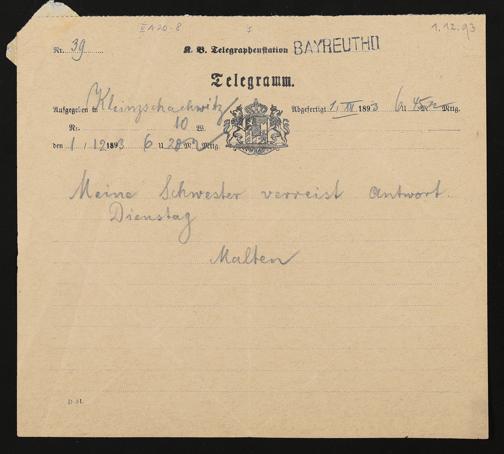 II A 20-8
1.12.93
Nr. 39 K. B. Telegraphenstation BAYREUTH II
Telegramm.
Aufgegeben in Kleinzschachwitz Abgefertigt 1. 1893 6 U 45 Mttg.
Nr. 10 W.
den 1 / 12 1893 6 U 20 M Mttg.
Meine Schwester verreist Antwort.
Dienstag
Malten